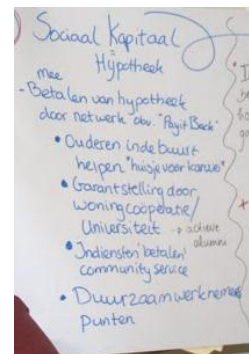 Sociaal Kapitaal
Hypotheek
mee
- Betalen van hypotheek
door netwerk obv. "Pay it Back"
• Ouderen in de buurt
helpen "huisje voor karwei"
• Garantstelling door
woningcoöperatie/
Universiteit → actieve
alumni
• 'Indiensten' betalen
community service
• Duurzaam werknemer
punten